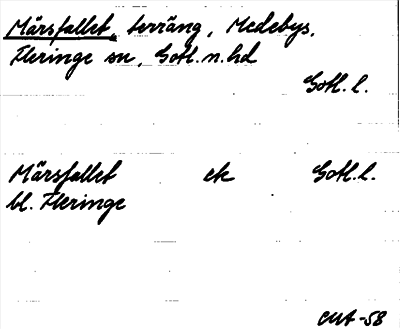 Märsfallet, terräng, Medebys,
Fleringe sn, Gotl. n. hd
Gotl. l.
Märsfallet ek Gotl. l.
bl. Fleringe
CMA -58